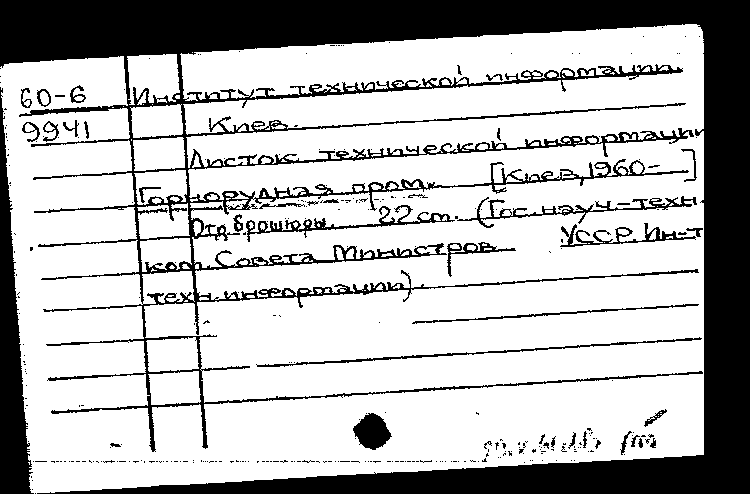 60-6 Институт технической информации.
9941 Киев.
Листок технической информации
Горнорудная пром. [Киев, 1960- ]
Отд. брошюры. 22 cm. (Гос. науч.-техн.
ком. Совета Министров УССР. Ин-т
техн. информации).